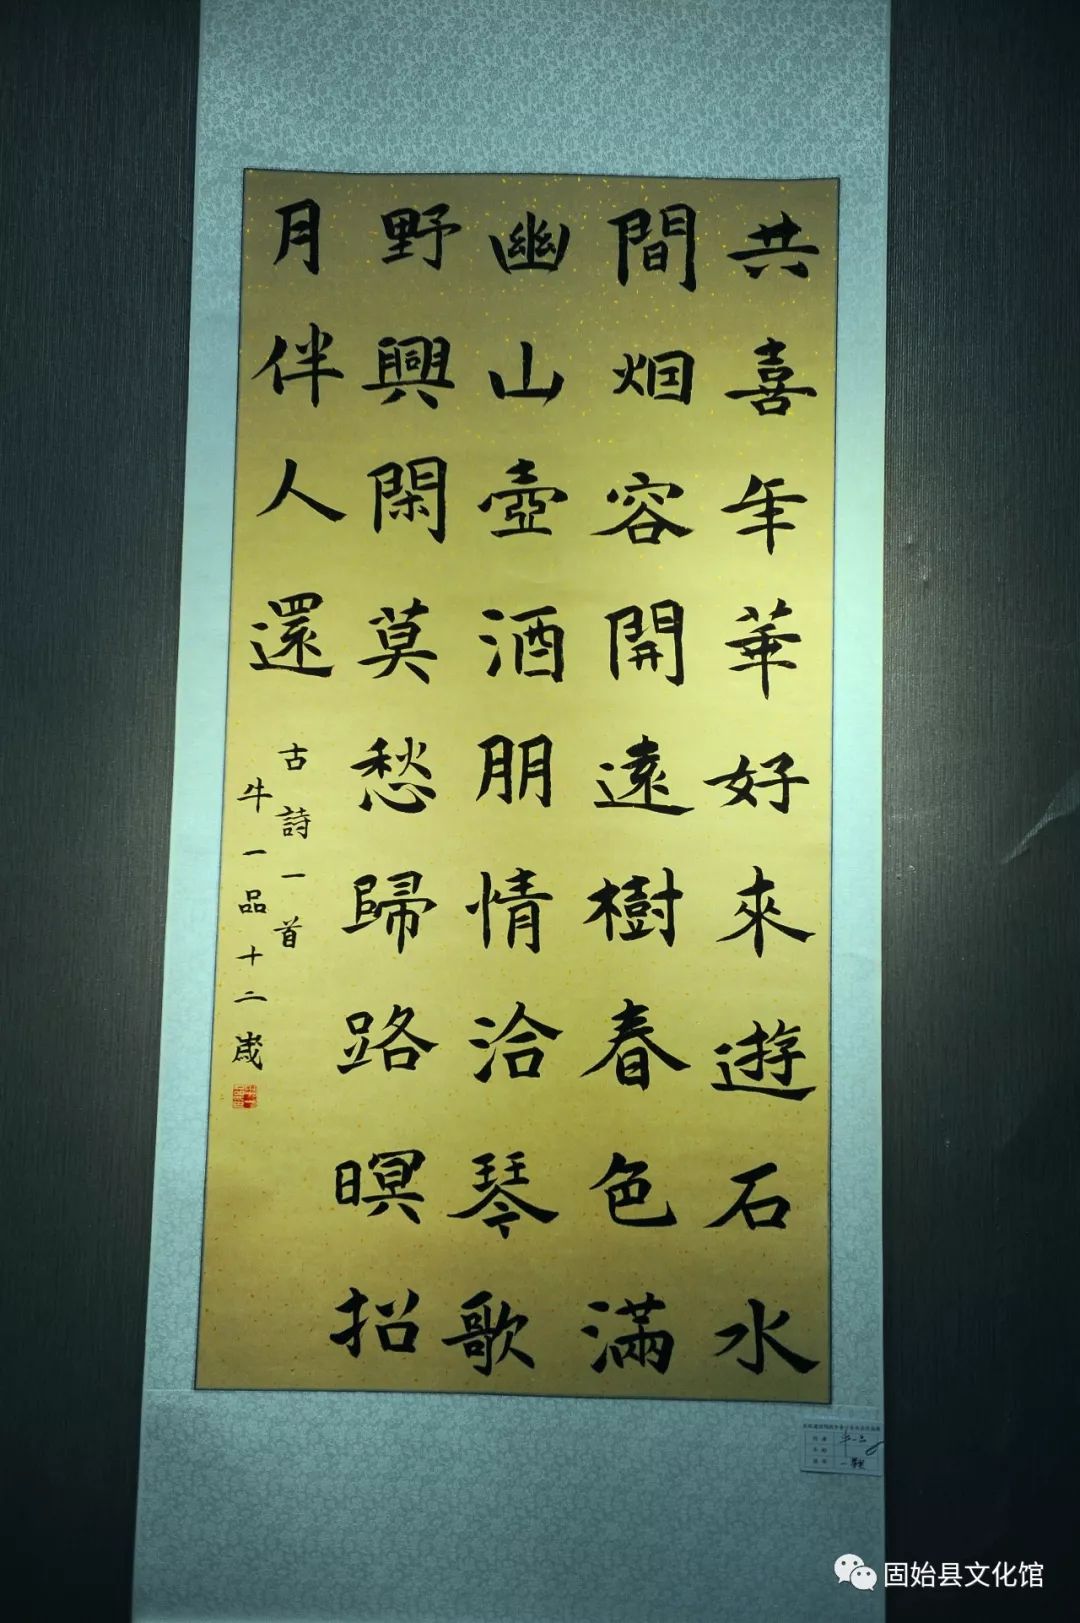 共喜年華好來遊石水
間烟容開遠樹春色滿
幽山壺酒朋情洽琴歌
野興閑莫愁歸路暝招
月伴人還
古詩一首
牛一品十二歲
固始县文化馆